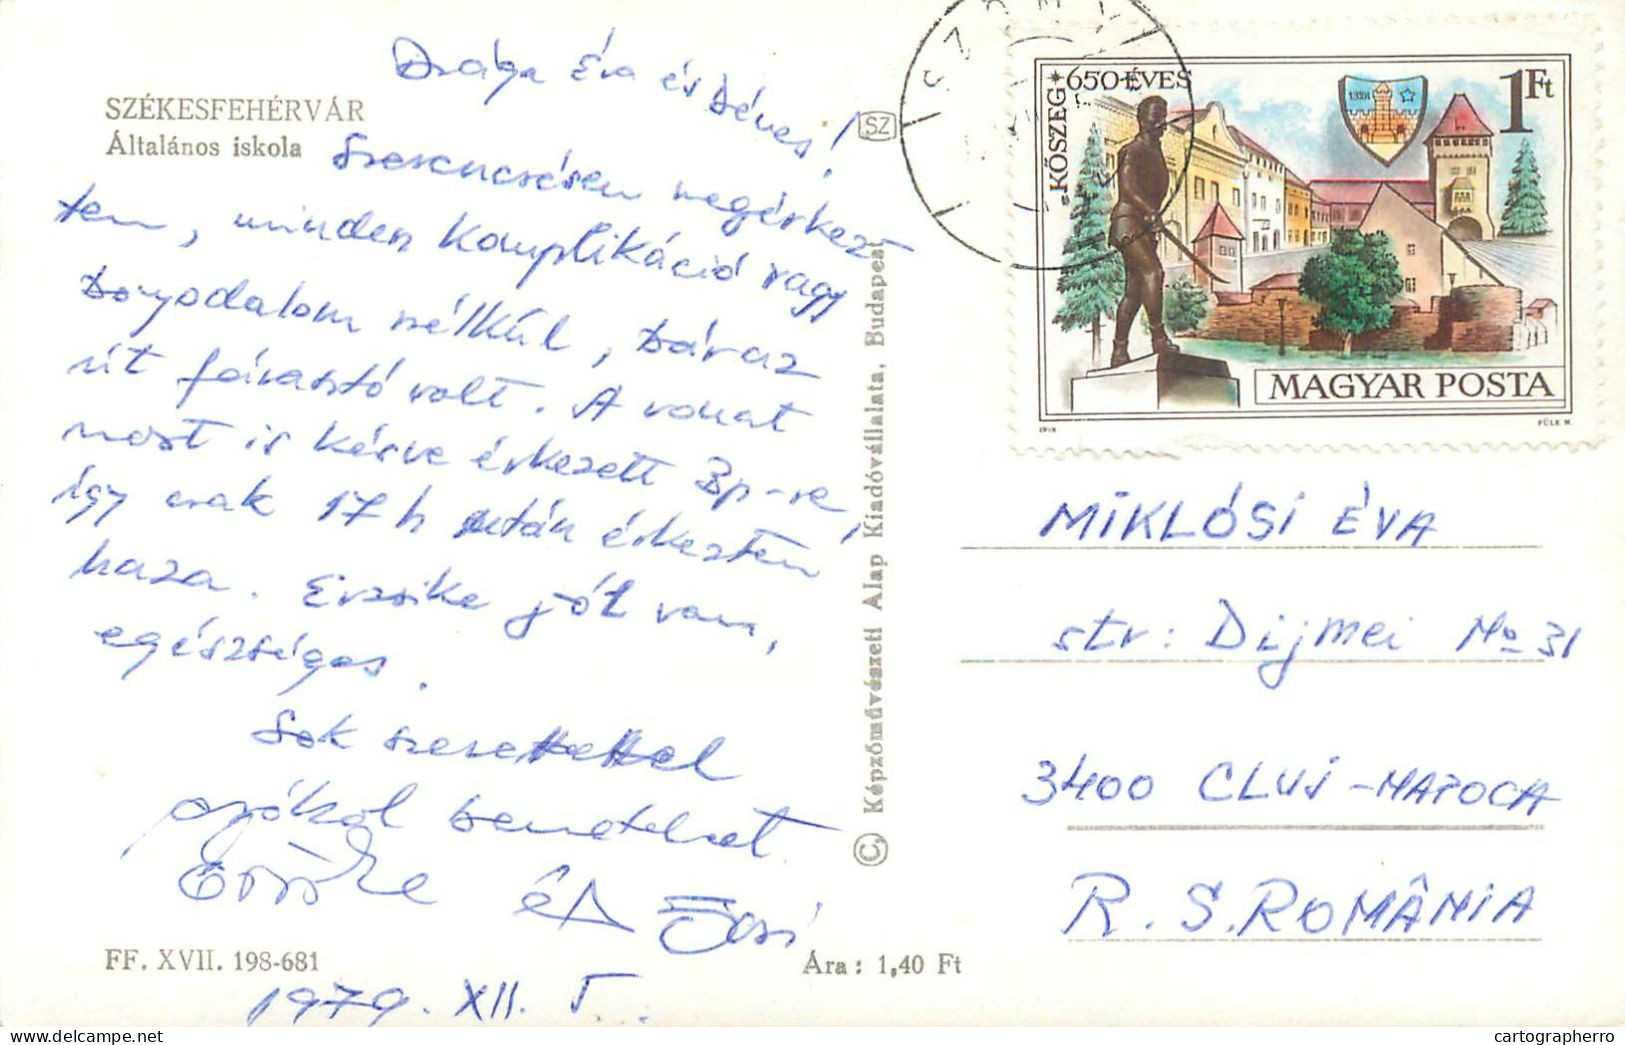 SZÉKESFEHÉRVÁR
Általános iskola
Drága Éva és Dénes!
Szerencsésen megérkez
tem, minden komplikáció vagy
bonyodalom nélkül, bár az
út fárasztó volt. A vonat
most is késve érkezett Bp-re,
így csak 17 h után érkeztem
haza. Erzsike jól van,
egészséges.
Sok szeretettel
csókol benneteket
és
1979. XII. 5.
FF. XVII. 198-681
Ára: 1,40 Ft
SZ
© Képzőművészeti Alap Kiadóvállalata, Budapest
KŐSZEG * 650 ÉVES
1328
1 Ft
MAGYAR POSTA
1978
FÜLE M.
MIKLÓSI ÉVA
str: Dijmei No 31
3400 CLUJ-NAPOCA
R. S. ROMÂNIA
cartographerro